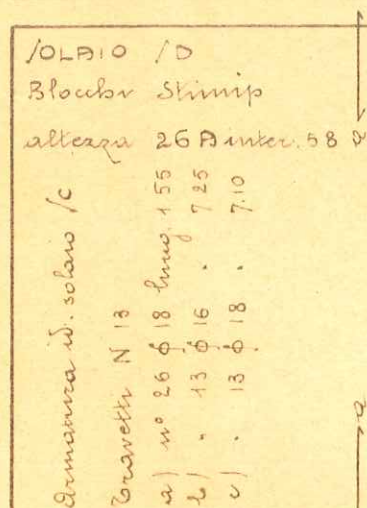 SOLAIO SD
Blocchi Stimip
altezza 26 A inter. 58
Armatura id. solaio Sc
Travetti N 13
a) n° 26 ϕ 18 lung. 1 55
b) " 13 ϕ 16 " 7 25
c) " 13 ϕ 18 " 7.10